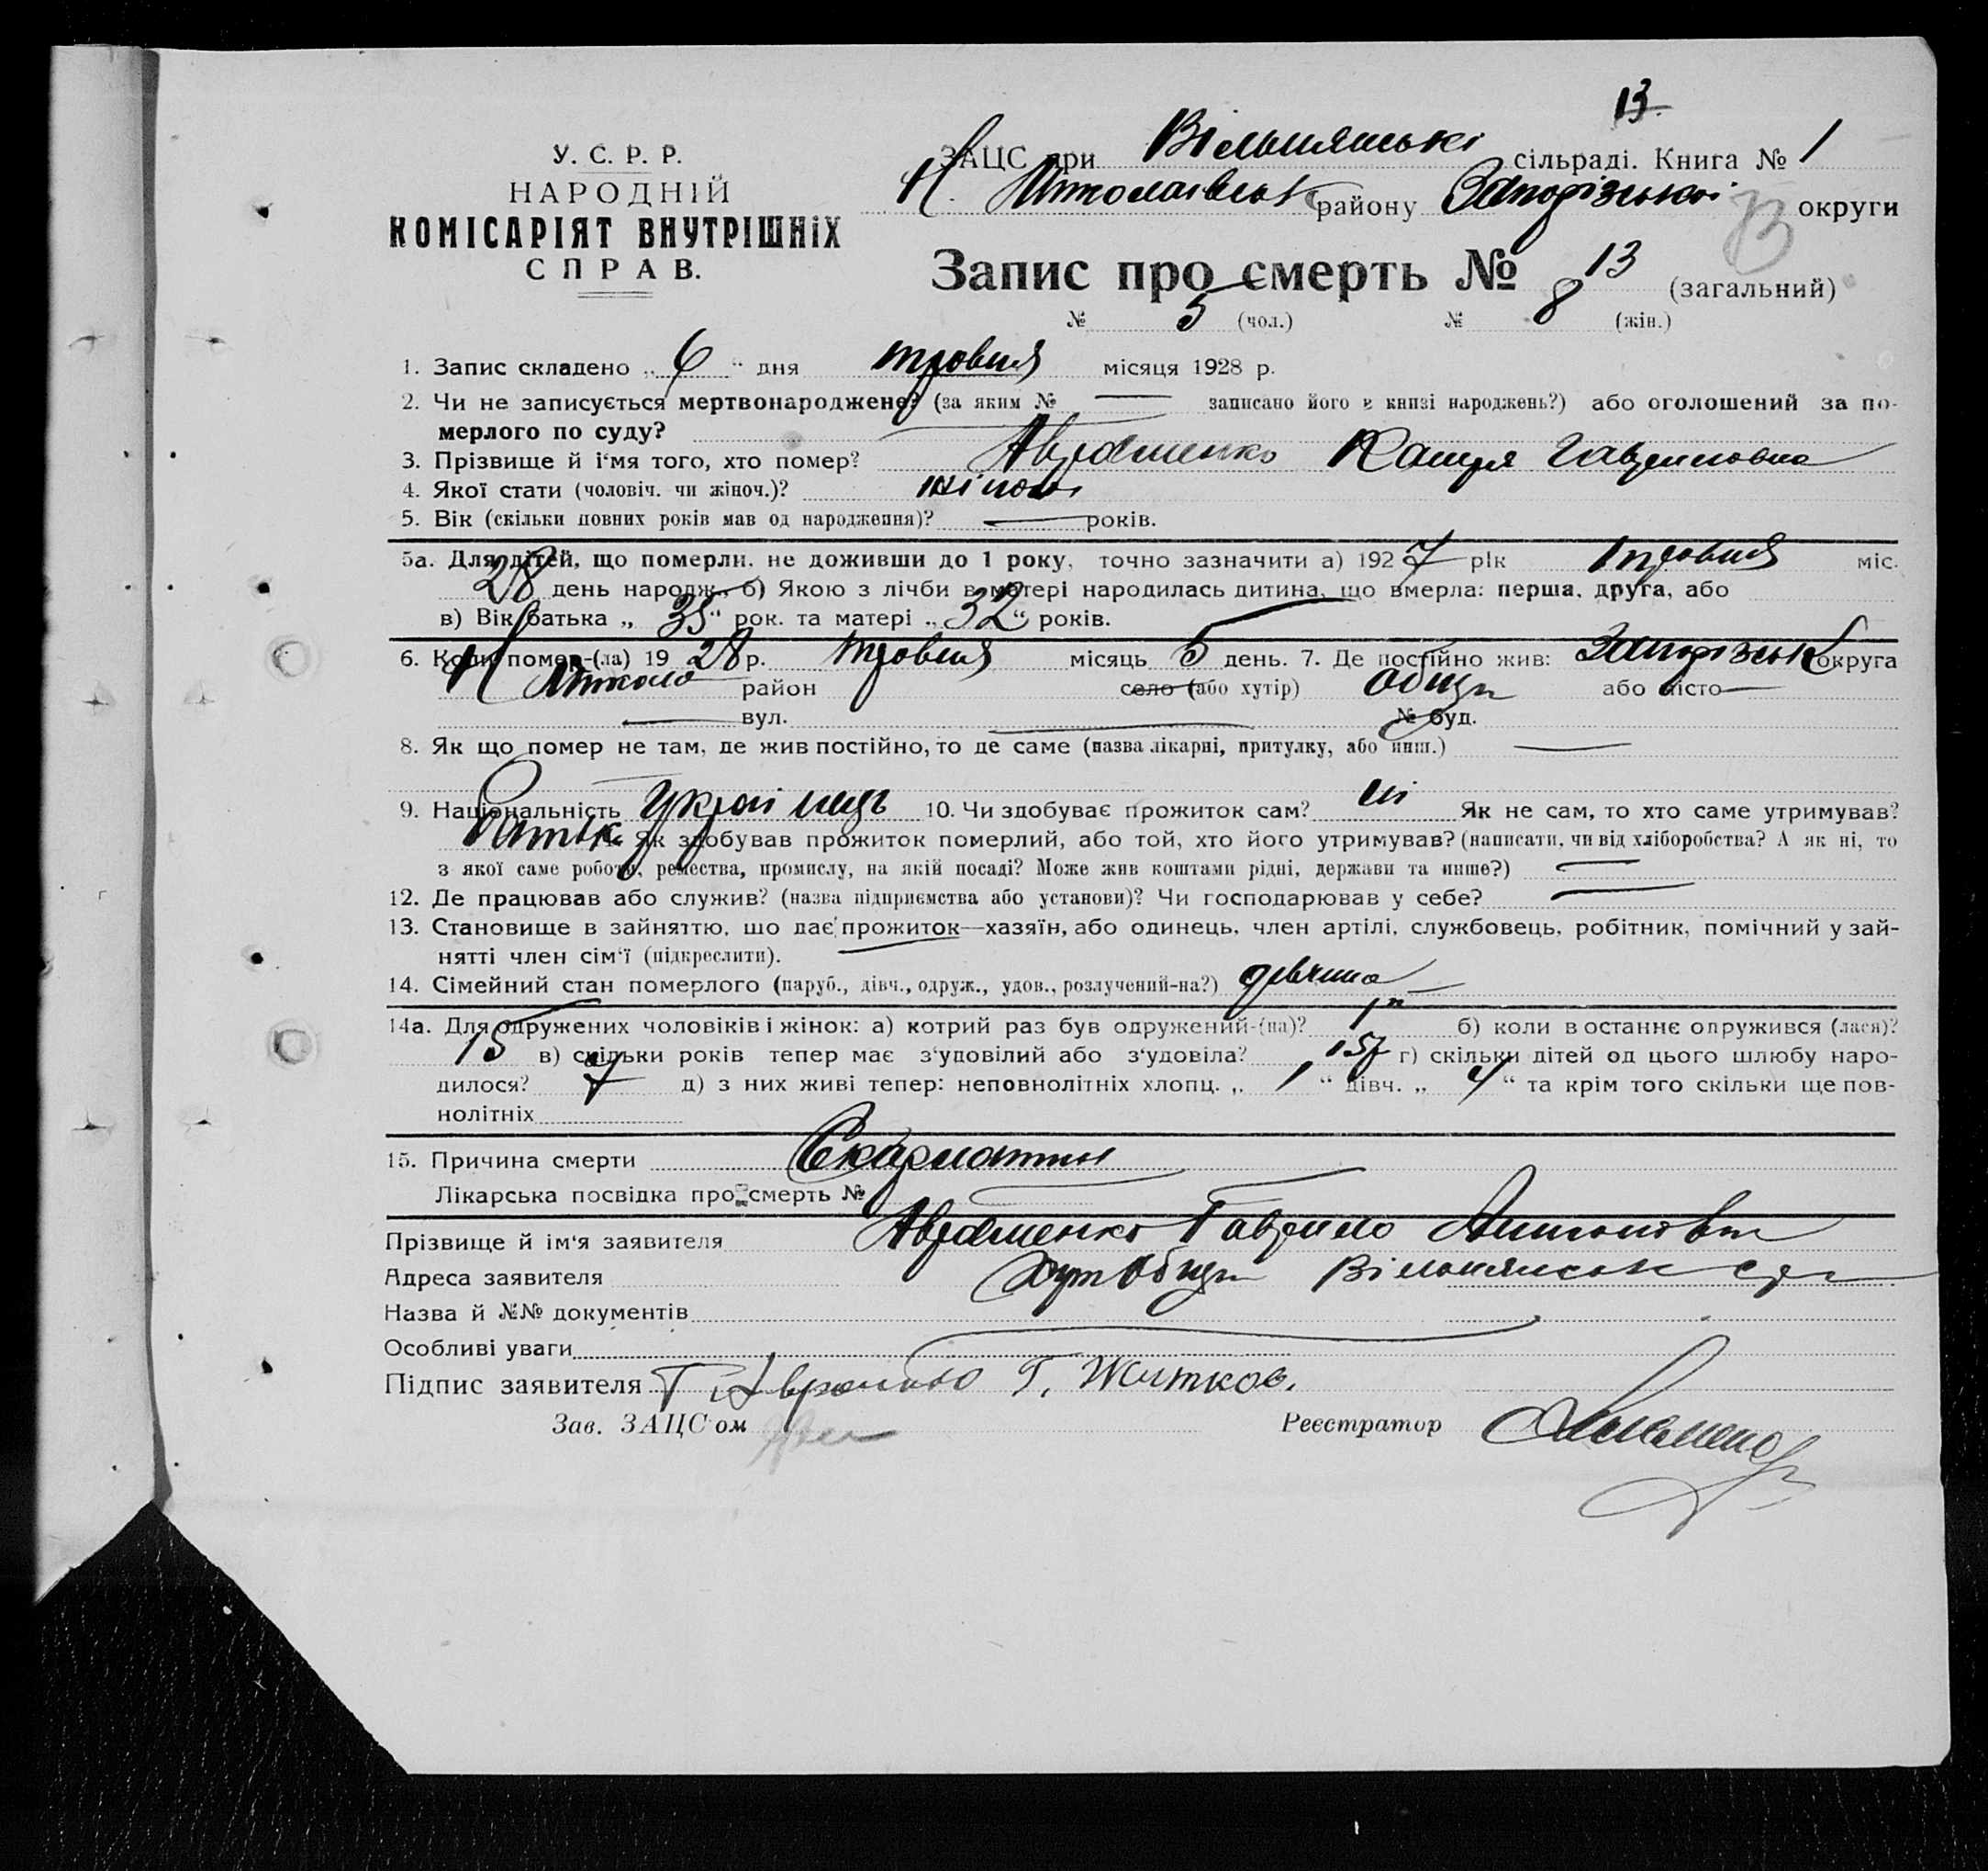 13
У. С. Р. Р.
НАРОДНІЙ
КОМІСАРІЯТ ВНУТРІШНІХ
СПРАВ.
ЗАЦС при Вільнянські сільраді. Книга № 1
Н. Миколаївськ району Запорізької округи
Запис про смерть № 13 (загальний)
№ 5 (чол.) № 8 (жін.)
1. Запис складено „ 6 " дня травня місяця 1928 р.
2. Чи не записується мертвонароджене? (за яким № — записано його в книзі народжень?) або оголошений за по-
мерлого по суду?
3. Прізвище й і'мя того, хто помер? Авраменко Гавриловна
4. Якої стати (чоловіч. чи жіноч.)? жіночі
5. Вік (скільки повних років мав од народження)? — років.
5а. Для дітей, що померли, не доживши до 1 року, точно зазначити а) 1927 рік травня міс.
28 день народж. б) Якою з лічби в матері народилась дитина, що вмерла: перша, друга, або
в) Вік батька „ 35 " рок. та матері „ 32 " років.
6. Коли помер-(ла) 19 28 р. травня місяць 5 день. 7. Де постійно жив: Запорізьк округа
Н Микола район село (або хутір) або місто —
— вул. — № буд.
8. Як що помер не там, де жив постійно, то де саме (назва лікарні, притулку, або инш.) —
9. Національність Українець 10. Чи здобуває прожиток сам? ні Як не сам, то хто саме утримував?
Батьк Як здобував прожиток померлий, або той, хто його утримував? (написати, чи від хліборобства? А як ні, то
з якої саме роботи, ремества, промислу, на якій посаді? Може жив коштами рідні, держави та инше?) —
12. Де працював або служив? (назва підприємства або установи)? Чи господарював у себе? —
13. Становище в зайняттю, що дає прожиток—хазяїн, або одинець, член артілі, службовець, робітник, помічний у зай-
нятті член сім'ї (підкреслити).
14. Сімейний стан померлого (паруб., дівч., одруж., удов., розлучений-на?) девчина
14а. Для одружених чоловіків і жінок: а) котрий раз був одружений-(на)? 1 б) коли в останнє одружився (лася)?
15 в) скільки років тепер має з'удовілий або з'удовіла? г) скільки дітей од цього шлюбу наро-
дилося? 7 д) з них живі тепер: неповнолітніх хлопц. „ 1 " дівч. „ 4 " та крім того скільки ще пов-
нолітніх
15. Причина смерти Скарлатин
Лікарська посвідка про смерть №
Прізвище й ім'я заявителя Авраменко Гаврило Антонович
Адреса заявителя Хут Вільнянськ
Назва й №№ документів
Особливі уваги
Підпис заявителя Г. Г. Житков.
Зав. ЗАЦС'ом
Реєстратор